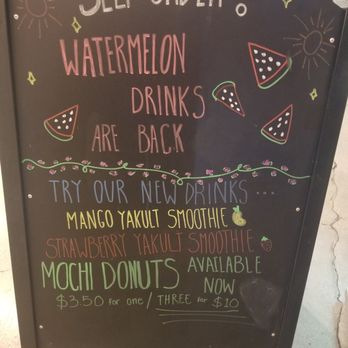 WATERMELON
DRINKS
ARE BACK
TRY OUR NEW DRINKS...
MANGO YAKULT SMOOTHIE
STRAWBERRY YAKULT SMOOTHIE
MOCHI DONUTS AVAILABLE NOW
$3.50 for one / THREE for $10